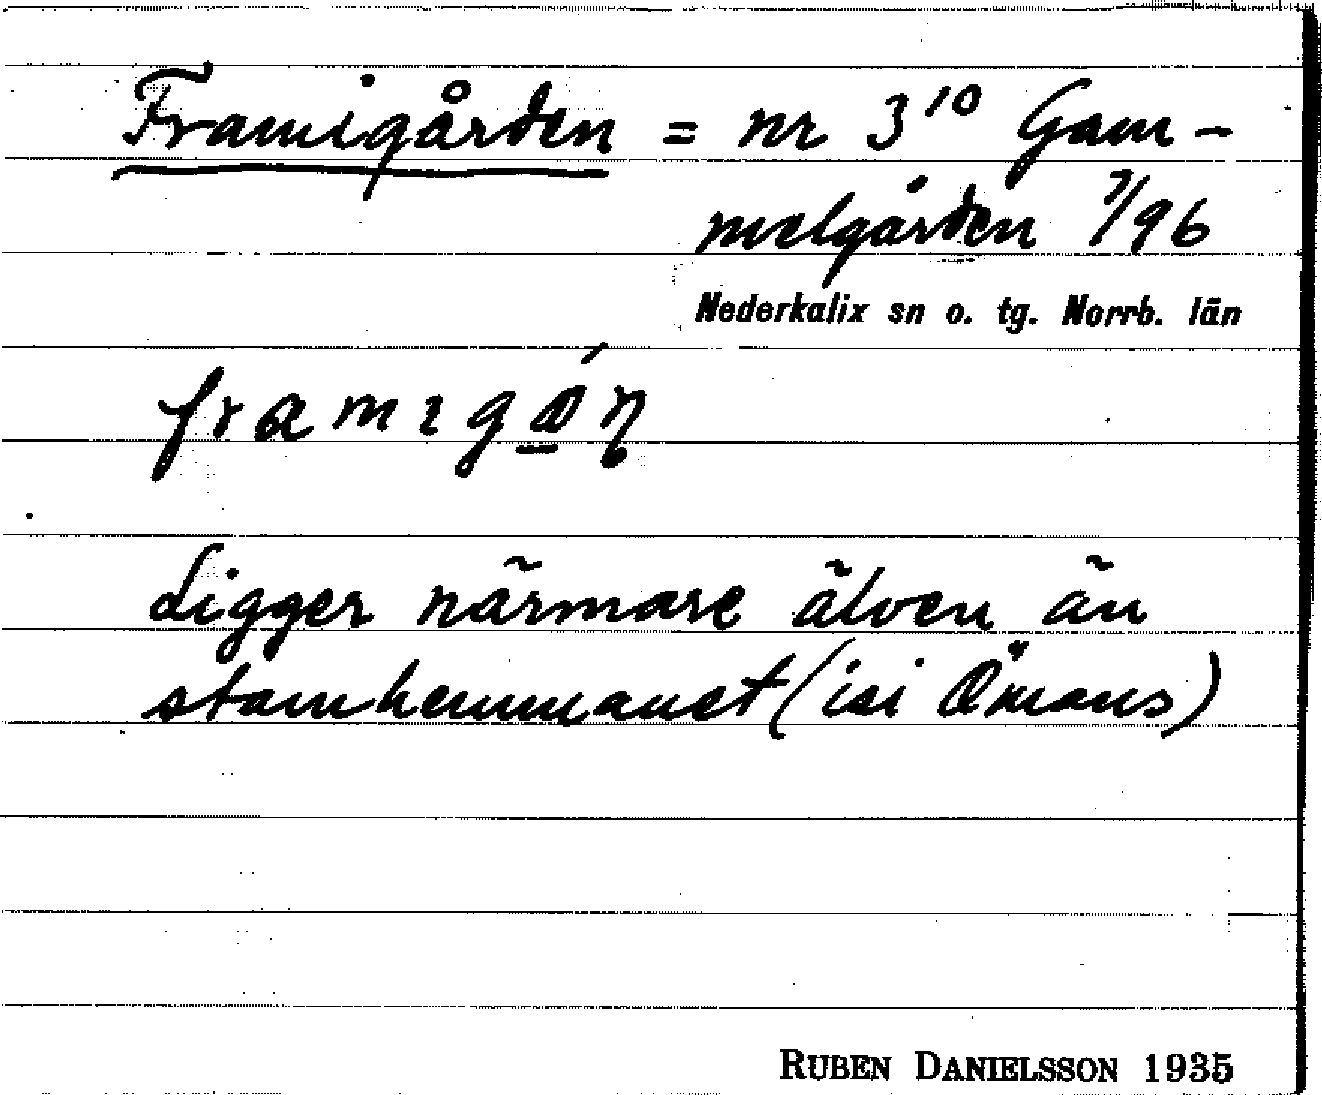 Framigården = nr 3¹⁰ Gam-
melgården 7/96
Nederkalix sn o. tg. Norrb. län
framıgǿ̱ṇ
Ligger närmare älven än
stamhemmanet (isi Ömans)
RUBEN DANIELSSON 1935